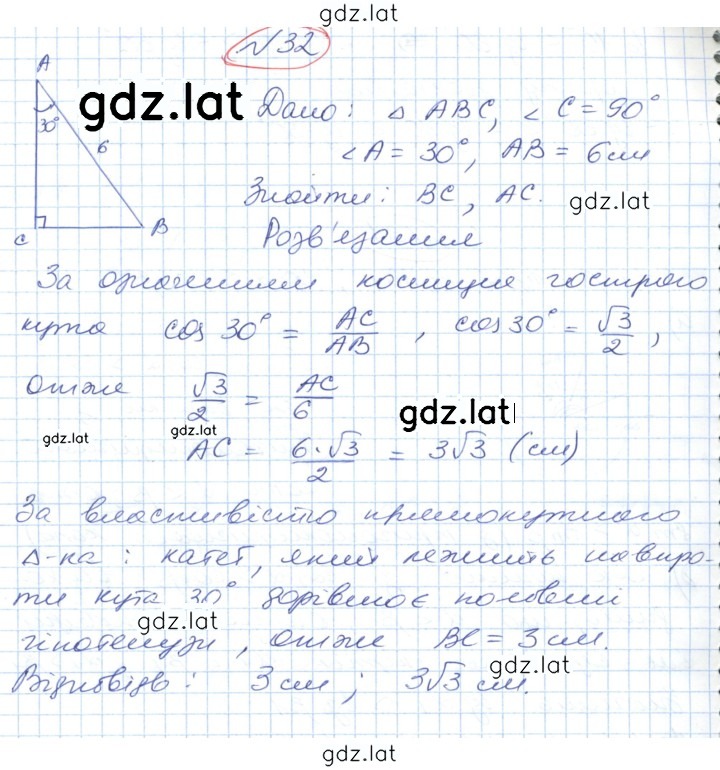 gdz.lat
№32
A
30°
6
C
B
gdz.lat
Дано: △ ABC, ∠ C = 90°
∠A = 30°, AB = 6см
Знайти: BC, AC.
gdz.lat
Розв'язання
За означенням косинуса гострого
кута cos 30° = AC/AB , cos 30° = √3/2,
отже √3/2 = AC/6
gdz.lat
gdz.lat
gdz.lat
AC = 6·√3/2 = 3√3 (см)
За властивістю прямокутного
△-ка: катет, який лежить навпро-
ти кута 30° дорівнює половині
gdz.lat
гіпотенузи, отже BC = 3 см.
gdz.lat
Відповідь: 3 см; 3√3 см.
gdz.lat